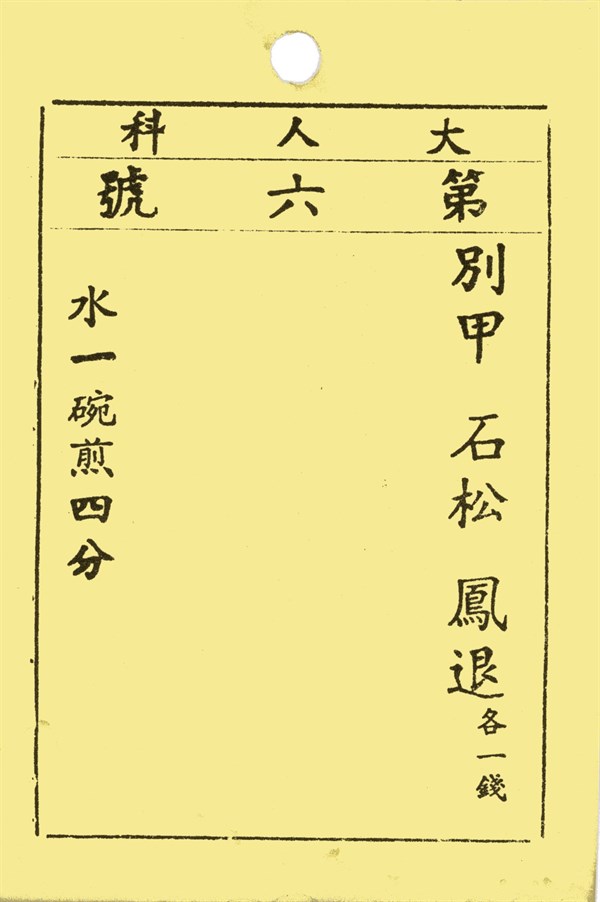 大人科
第六號
別甲 石松 鳳退各一錢
水一碗煎四分